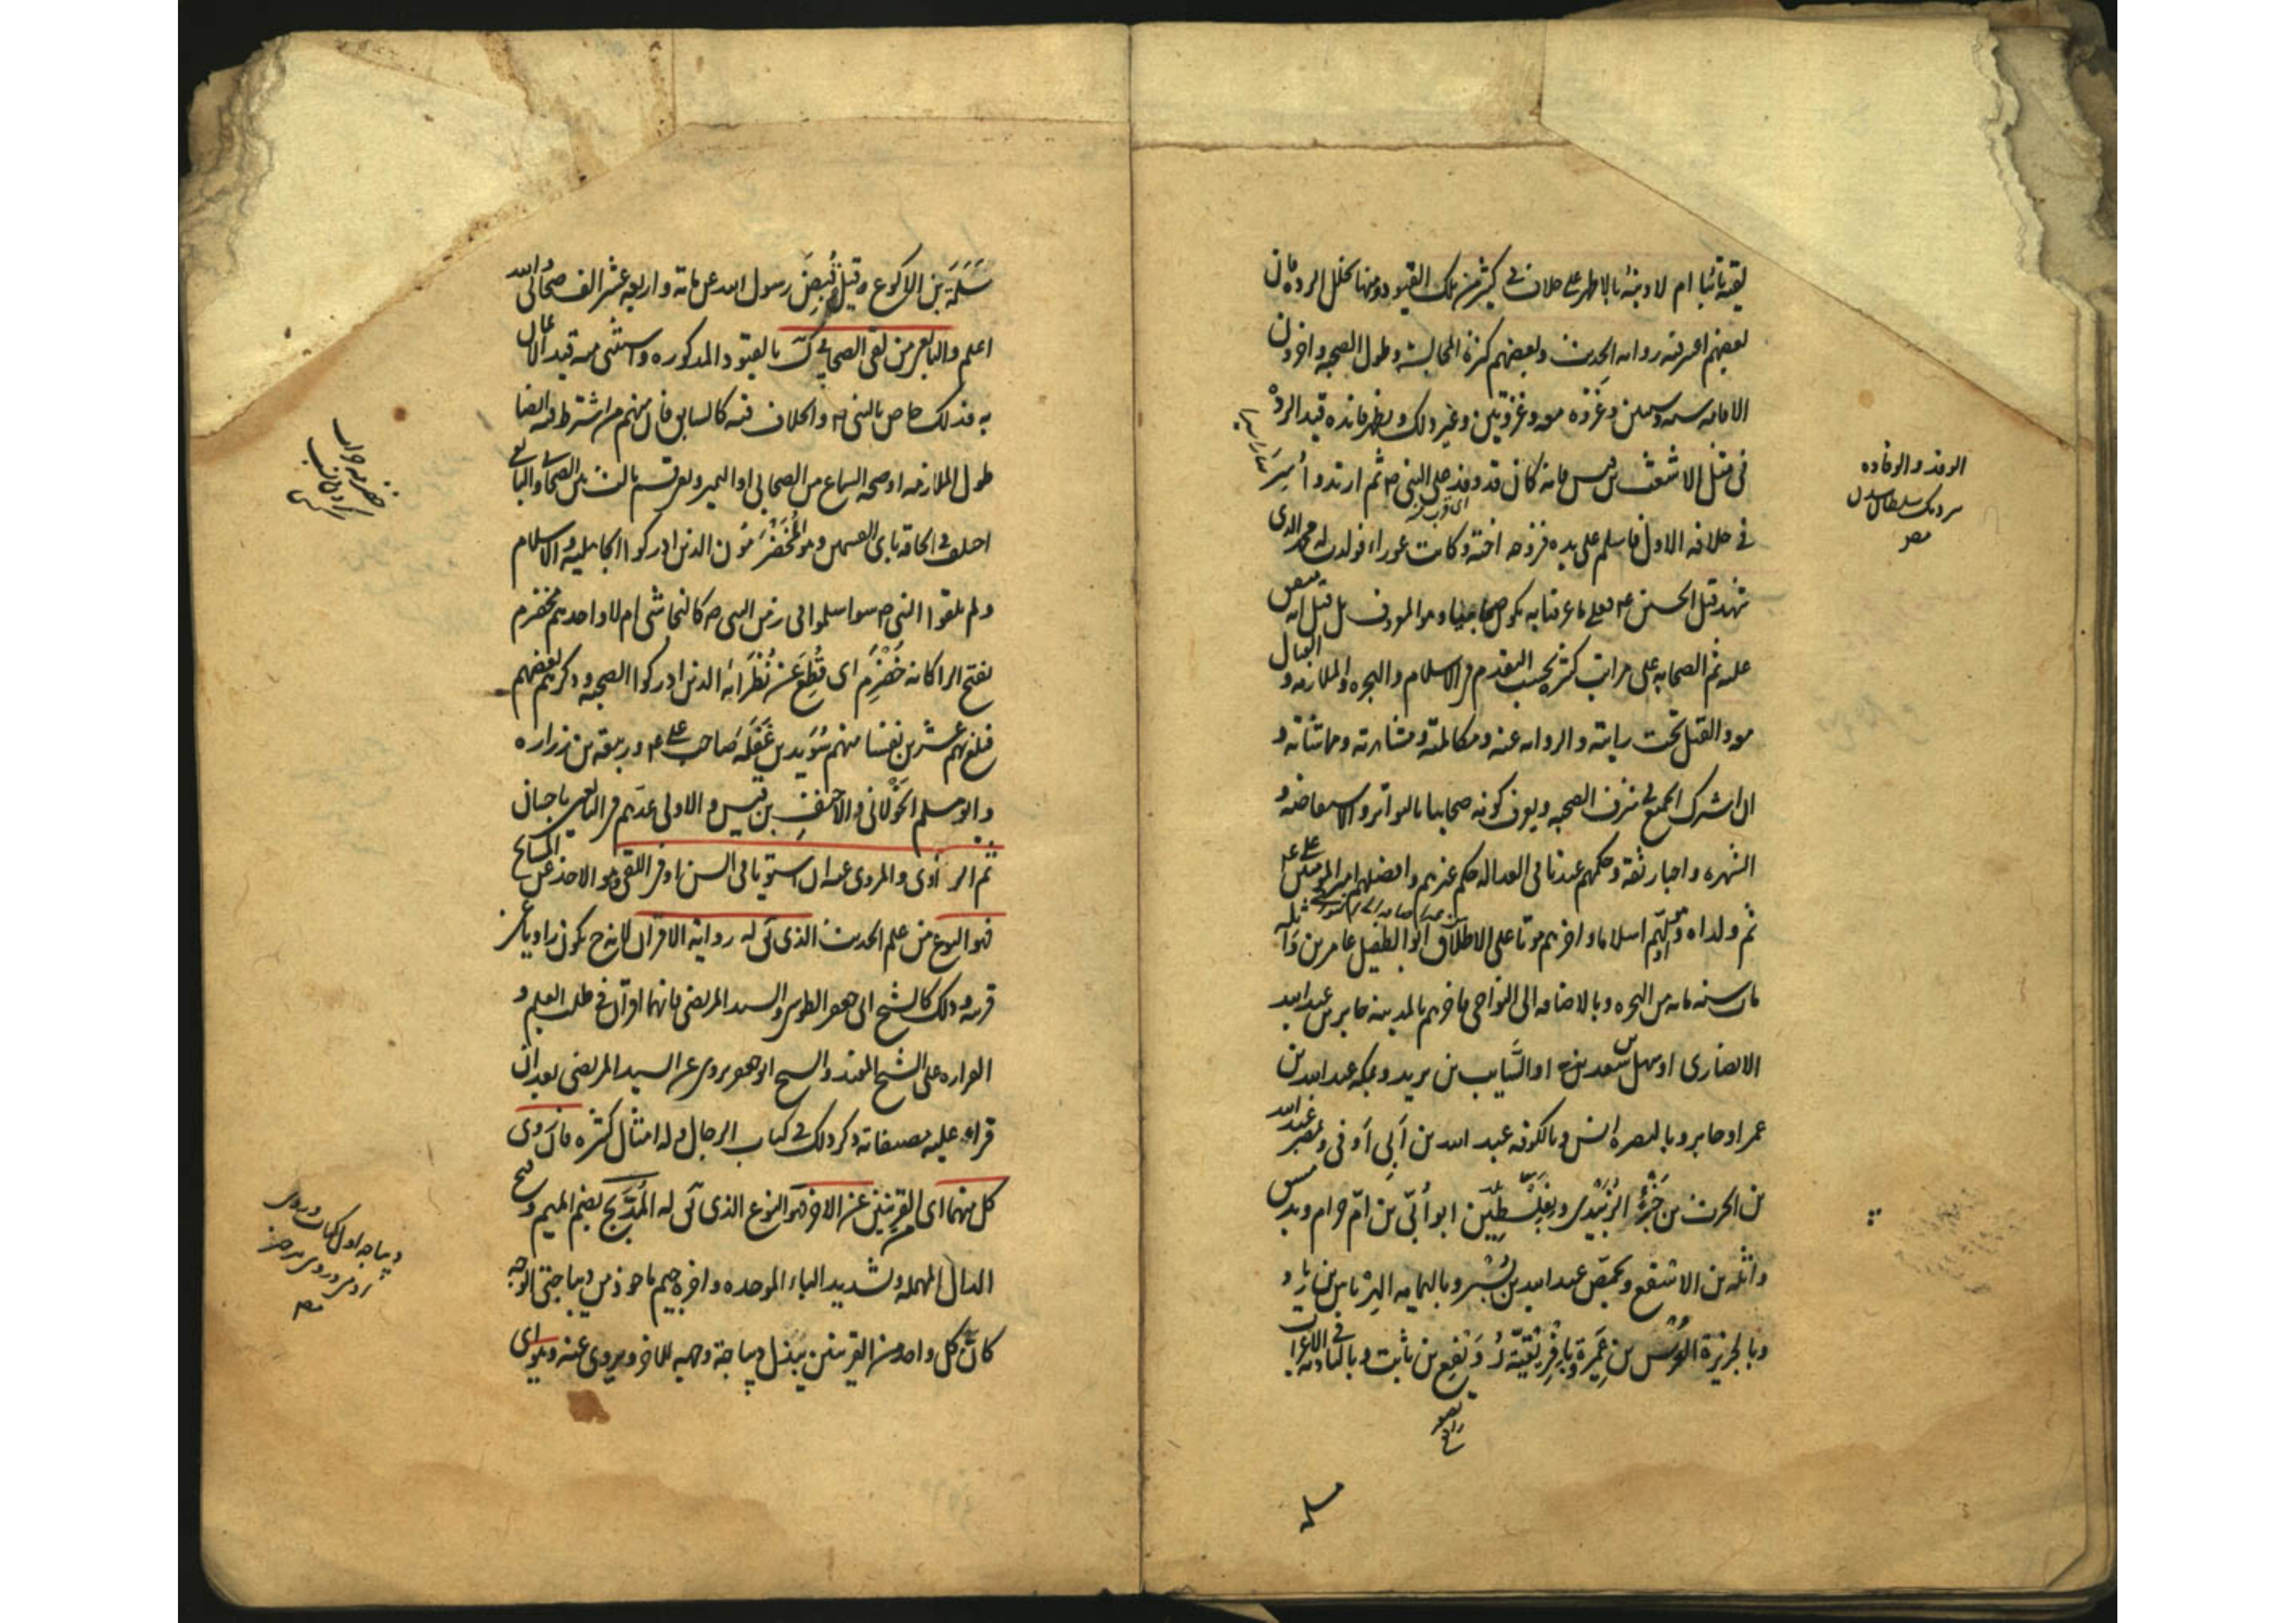 لقيه تائبا ام لا ومنه بالاظهر على خلاف في كثير من تلك القيود ومنها تخلل الرده فان
بعضهم اعتبر فيه روايه الحديث وبعضهم كثرة المجالسة وطول الصحبه واخرون
الاقامه سنه وسنتين وغزوه معه وغزوتين وغير ذلك ويظهر فائده قيد الردة
في مثل الاشعث بن قيس فانه كان قد وفد على النبي ص ثم ارتد واُسِرَ
في خلافه الاول فاسلم على يده فزوجه اخته وكانت عوراء فولدت له محمد الذى
شهد قتل الحسين ع فعلى ما عرفنا به يكون صحابيا وهو المعروف بل قيل انه متفق
عليه ثم الصحابه على مراتب كثيرة بحسب التقدم في الاسلام والهجره والملازمه والقتال
معه والقتل تحت رايته والروايه عنه ومكالمته ومشاهرته ومماشاته و
ان اشترك الجميع في شرف الصحبه ويعرف كونه صحابيا بالتواتر والاستفاضه و
الشهره واخبار ثقة وحكمهم عندنا في العداله حكم غيرهم وافضلهم امير المؤمنين على ع
ثم ولداه وهو اولهم اسلاما واخرهم موتا على الاطلاق ابو الطفيل عامر بن واثله
مات سنه مائه من الهجره وبالاضافه الى النواحى فاخرهم بالمدينه جابر بن عبد الله
الانصارى او سهل بن سعد او السَّايب بن يزيد وبمكه عبد الله بن
عمر او جابر وبالبصره انس وبالكوفه عبد الله بن اَبى اَوفى وبمصر عبد الله
بن الحرث بن جَزْء الزُبَيْدى وبفِلَسْطِيْن ابو اُبىّ بن امّ حرام وبدمشق
واثله بن الاسقع وبحِمْص عبد الله بن بُسْر وباليمامه الهِرْماس بن زياد و
وبالجزيرة العُرْس بن عَمِيرة وباِفْرِيْقيّة رُوَيْفِع بن ثابت وبالباديه في الاعراب
الوفد والوفاده
نزديك سلطان شدن
سلمه
سَلَمَة بن الاكوع وقيل قُبِضَ رسول الله عن مائة واربعه عشر الف صحابى والله
اعلم والتابعى من لقى الصحابى كك بالقيود المذكوره واستثنى منه قيد الايمان
به فذلك خاص بالنبى ص والخلاف فيه كالسابق فان منهم من اشترط فيه ايضا
طول الملازمه او صحه السماع من الصحابى او التميز وبقى قسم ثالث بين الصحابى والتابعى
اختلف في الحاقه باى القسمين وهو المُخَضْرَمُون الذين ادركوا الجاهليه والاسلام
ولم يلقوا النبى ص سواء اسلموا فى زمن النبى ص كالنجاشى ام لا واحدهم مخضرم
بفتح الراء كانه خُضْرِمَ اى قُطِعَ عَن نُظَرَائه الذين ادركوا الصحبه وذكرهم بعضهم
فبلغ بهم عشرين نفسا منهم سُوَيد بن غَفَلَة صاحب على ع وربيعة بن زراره
وابو مسلم الخَوْلانى والاحنف بن قيس والاولى عدّهم في التابعين باحسان
ثم الراوى والمروى عنه ان استويا فى السن او فى اللقى وهو الاخذ عن المشايخ
فهو النوع من علم الحديث الذى يق له رواية الاقران لانه ح يكون راويا عن
قرينه وذلك كالشيخ ابى جعفر الطوسى والسيد المرتضى فانهما اقران في طلب العلم و
القراءه على الشيخ المفيد والشيخ ابو جعفر يروى عن السيد المرتضى بعد ان
قراء عليه مصنفاته وذكر ذلك في كتاب الرجال وله امثال كثيره فان روى
كل منهما اى القرينين عن الاخر فهو النوع الذى يق له المُدَبَّج بضم الميم وفتح
الدال المهمله وتشديد الباء الموحده واخره جيم ماخوذ من ديباجتى الوجه
كانّ كل واحد من القرينين يبذل ديباجة وجهه للاخر ويروى عنه وهو اى